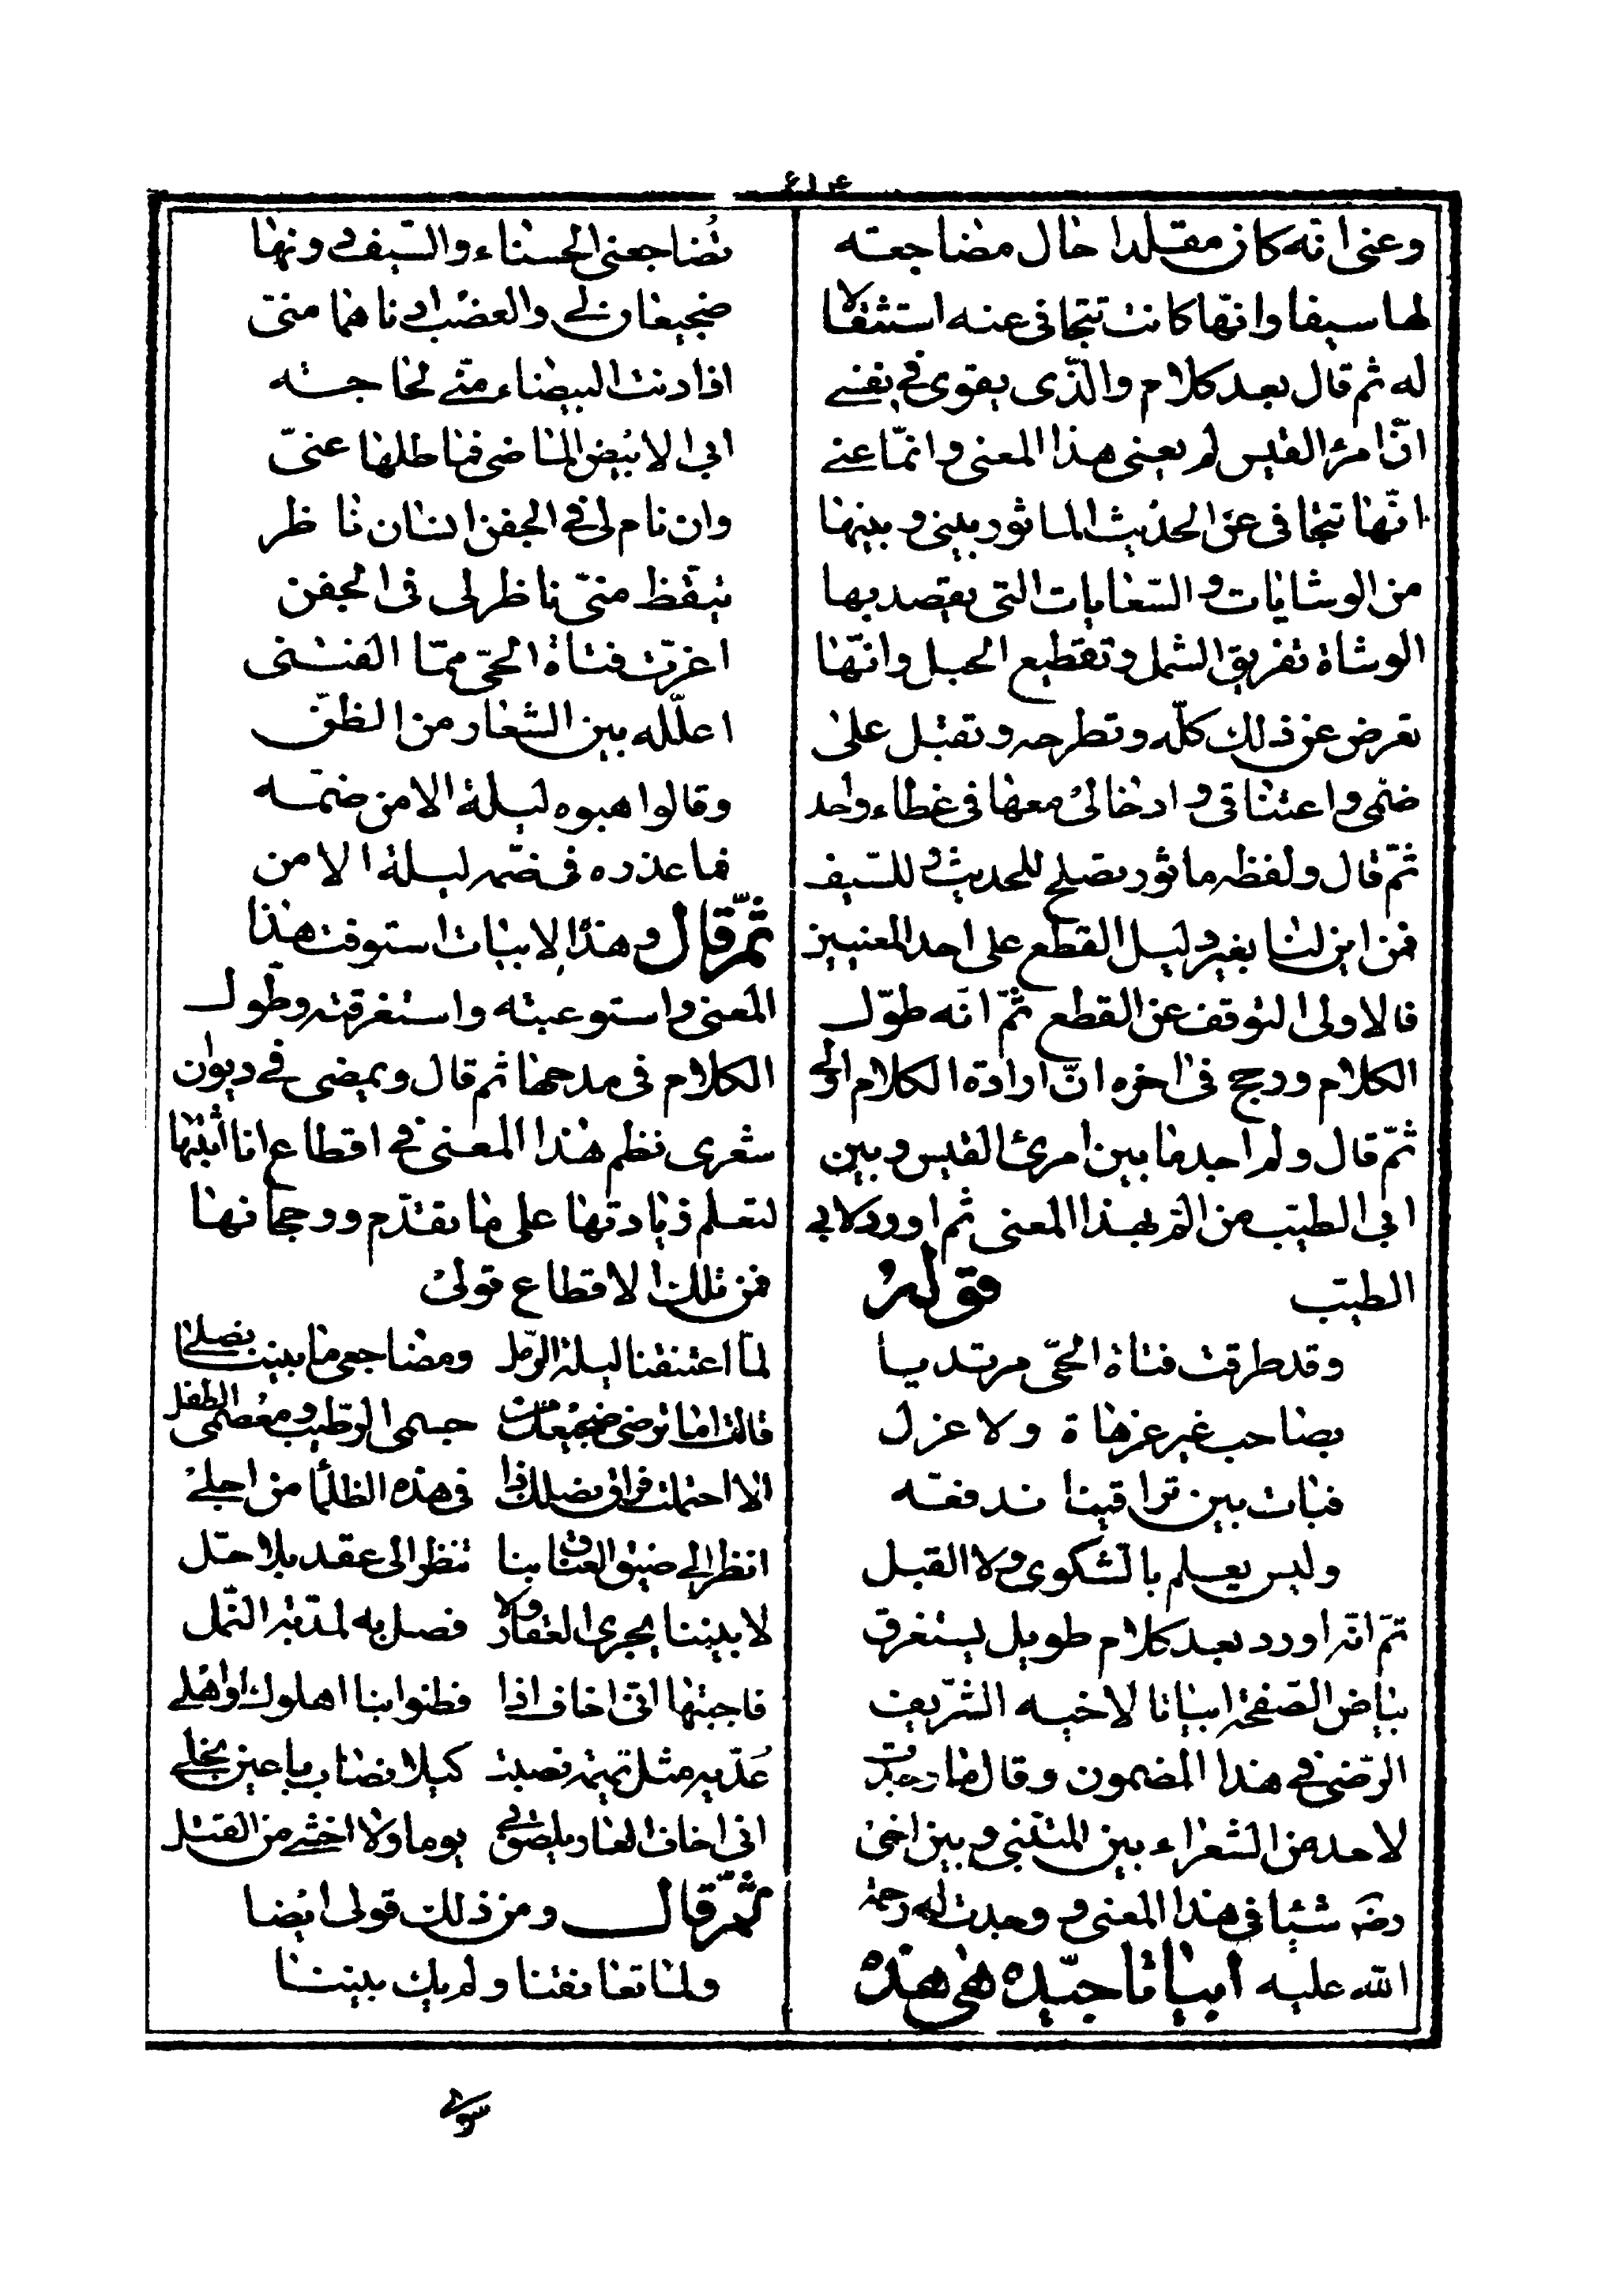 ٤١٤
وعنى انّه كان مقلدا حال مضاجعته
لها سيفا وانّها كانت تتجافى عنه استثقالا
له ثم قال بعد كلام والذّى يقوى فى نفسى
انّ امرئ القيس لم يعنى هذا المعنى وانّما عنى
انّها تتجافى عن الحديث الماثور بينى وبينها
من الوشايات والسّعايات التى يقصد بها
الوشاة تفريق الشمل وتقطيع الحبل وانّها
تعرض عن ذلك كلّه وتطرحه وتقبل على
ضمى واعتناقى وادخالى معها فى غطاء واحد
ثمّ قال ولفظه ماثور تصلح للحديث وللسّيف
فمن اين لنا بغير دليل القطع على احد المعنيين
فالاولى التوقف عن القطع ثمّ انّه طوّل
الكلام ورجح فى اخره انّ ارادة الكلام اولى
ثمّ قال ولم اجد ما بين امرئ القيس وبين
ابى الطيّب من المّ بهذا المعنى ثم اورد لابى
الطيّب قوله
وقد طرقت فتاة الحىّ مرتديا
بصاحب غير عزهاة ولا عزل
فبات بين تراقينا ندفعه
وليس يعلم بالشّكوى ولا القبل
ثمّ انّه اورد بعد كلام طويل يستغرق
بياض الصّفحة ابياتا لاخيه الشّريف
الرّضى فى هذا المضمون وقال ما وجدت
لاحد من الشعراء بين المتنبى وبين اخى
رضه شيئا فى هذا المعنى ووجدت له رحمة
الله عليه ابياتا جيّده هى هذه
تُضاجعنى الحسناء والسّيف دونها
ضجيعان لى والعضب ادناهما منّى
اذا دنت البيضاء منّى لحاجته
ابى الابيض الماضى فماطلها عنّى
وان نام لى فى الجفن انسان ناظر
تيقّظ منّى ناظر لى فى الجفن
اغرّت فتاة الحىّ ممّا الفتنى
اعلّله بين الشعار من الظنّ
وقالوا هبوه ليلة الامن ضمّه
فما عذره فى ضمّه ليلة الامن
ثمّ قال وهذا الابيات استوفت هذا
المعنى واستوعبته واستغرقته وطول
الكلام فى مدحها ثم قال ويمضى فى ديوان
شعرى نظم هذا المعنى فى اقطاع انا اثبتها
لتعلم زيادتها على ما تقدّم ورجحانها
فمن تلك الاقطاع قولى
لمّا اعتنقنا ليلة الرّمل ومضاجعى ما بيننا نصلى
قالت اما ترضى ضجيعك من جسمى الرطيب ومعصمى الطفل
الا احتملت فراق نصلك ذا فى هذه الظلما من اجلى
انظر الى ضيق العناق بنا تنظر الى عقد بلا حلّ
لا بيننا يجرى العقار ولا فصل به لمدبّة النّمل
فاجبتها انّى اخاف اذا فطنوا بنا اهلوك او اهلى
عُدّيه مثل تميمة نصبت كيلا نصاب باعين نجلى
انى اخاف العار يلصق بى يوما ولا اخشى من القتل
ثمّ قال ومن ذلك قولى ايضا
ولمّا تعانقنا ولم يك بيننا
سوى